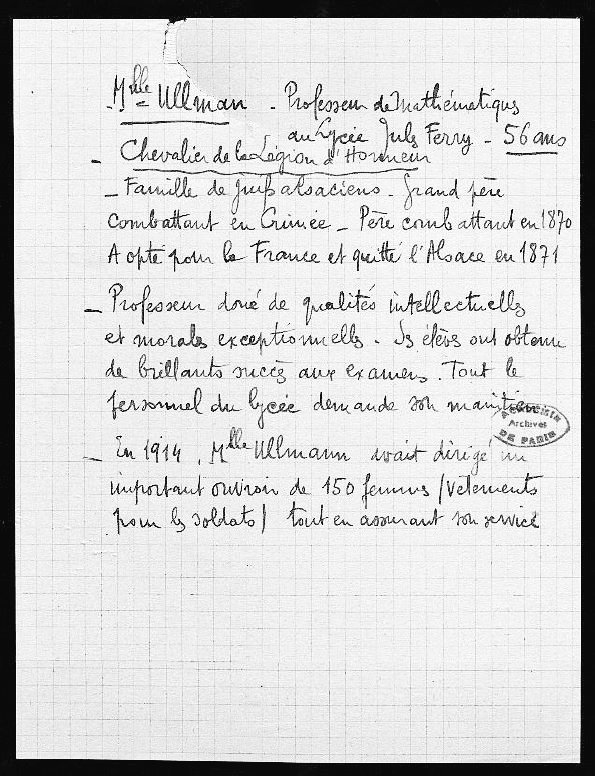 - Mlle Ullman - Professeur de Mathématiques
au Lycée Jules Ferry - 56 ans
- Chevalier de la Légion d'Honneur
- Famille de Juifs alsaciens - Grand père
combattant en Crimée - Père combattant en 1870
A opté pour la France et quitté l'Alsace en 1871
- Professeur doué de qualités intellectuelles
et morales exceptionnelles. Ses élèves ont obtenu
de brillants succès aux examens. Tout le
personnel du lycée demande son maintien
ACADÉMIE
Archives
DE PARIS
- En 1914, Mlle Ullmann avait dirigé un
important ouvroir de 150 femmes (vêtements
pour les soldats) tout en assurant son service